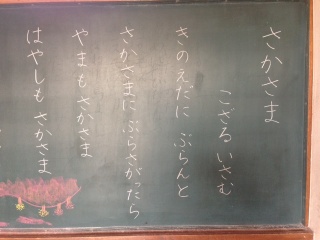 さかさま
こざる いさむ
きのえだに ぶらんと
さかさまに ぶらさがったら
やまもさかさま
はやしも さかさま